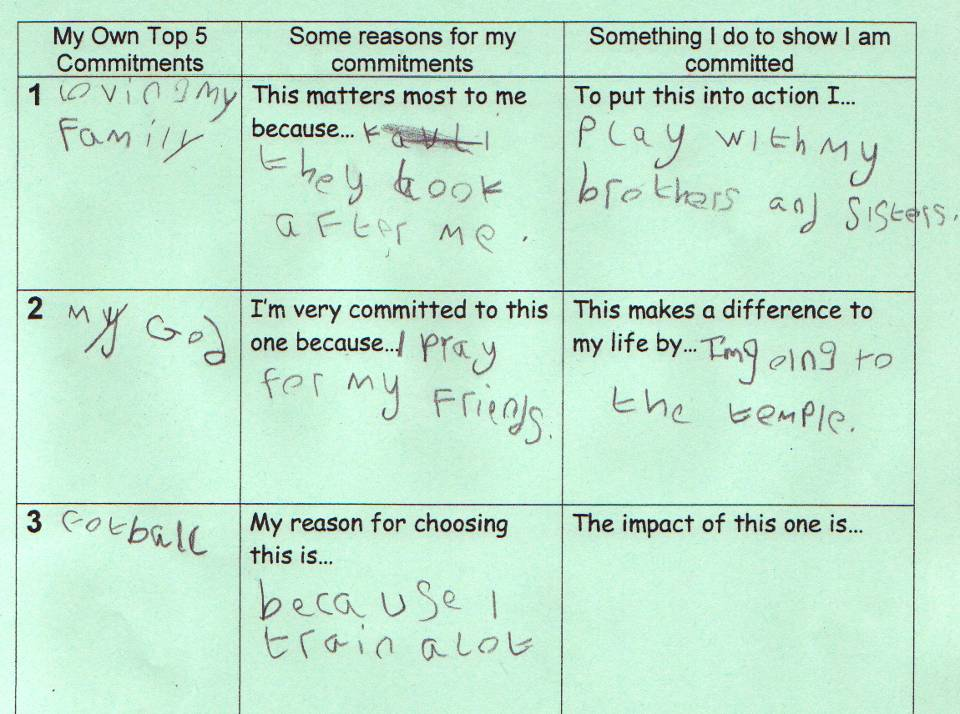 My Own Top 5
Commitments
Some reasons for my
commitments
Something I do to show I am
committed
1 Loving my
Family
This matters most to me
because...
they look
after me.
To put this into action I...
Play with my
brothers and Sisters.
2 My God
I'm very committed to this
one because...I pray
for my Friends.
This makes a difference to
my life by...I'm going to
the temple.
3 Fotball
My reason for choosing
this is...
because I
train alot
The impact of this one is...